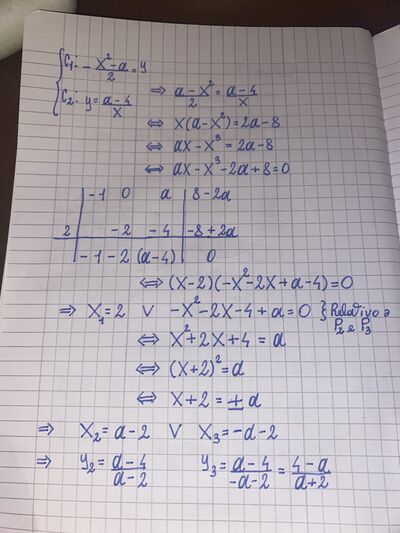 C₁: -x²-a/2 = y
C₂: y = a-4/x ⇒ a-x²/2 = a-4/x
⇔ x(a-x²) = 2a-8
⇔ ax-x³ = 2a-8
⇔ ax-x³-2a+8=0
-1 0 a 8-2a
2 -2 -4 -8+2a
-1 -2 (a-4) 0
⇔ (x-2)(-x²-2x+a-4)=0
⇒ x₁=2 ∨ -x²-2x-4+a=0 } Relativo a P₂ e P₃
⇔ x²+2x+4 = a
⇔ (x+2)²=a
⇔ x+2=±a
⇒ x₂=a-2 ∨ x₃=-a-2
⇒ y₂=a-4/a-2 y₃=a-4/-a-2=4-a/a+2